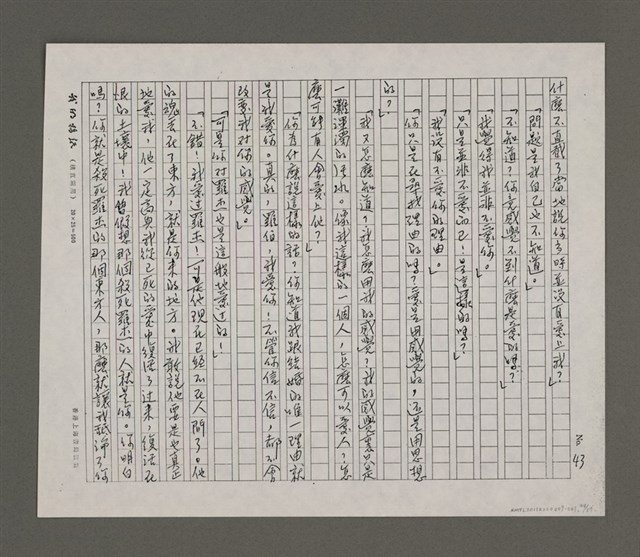 43
什麼不直截了當地說你當時並沒有愛上我？」
「問題是我自己也不知道。」
「不知道？你竟感覺不到什麼是愛的嗎？」
「我覺得我並非不愛你。」
「只是並非不愛而已！是這樣的嗎？」
「我沒有不愛你的理由。」
「你只是在尋找理由的嗎？愛是用感覺的，還是用思想
的？」
「我又怎麼知道？我怎麼用我的感覺，我的感覺裏只是
一灘渾濁的積水。像我這樣的一個人，怎麼可以愛人？怎
麼可能有人會愛上他？」
「你為什麼說這樣的話？你知道我跟你結婚的唯一理由就
是我愛你。真的，羅伯，我愛你！不管你信不信，都不會
改變我對你的感覺。」
「可是你對羅杰也是這般地愛過的！」
「不錯！我愛過羅杰！可是他現在已經不在人間了。他
的魂丟在了東方，就是你來的地方。我敢說他要是也真正
地愛我，他一定高興我從已死的愛中復活了過來，復活在
的土壤中！我曾假想那個殺死羅杰的人就是你。你明白
嗎？你就是殺死羅杰的那個東方人，那麼就讓我抵淌了你
(橫直兩用) 20×25=500
香港上海書局出品